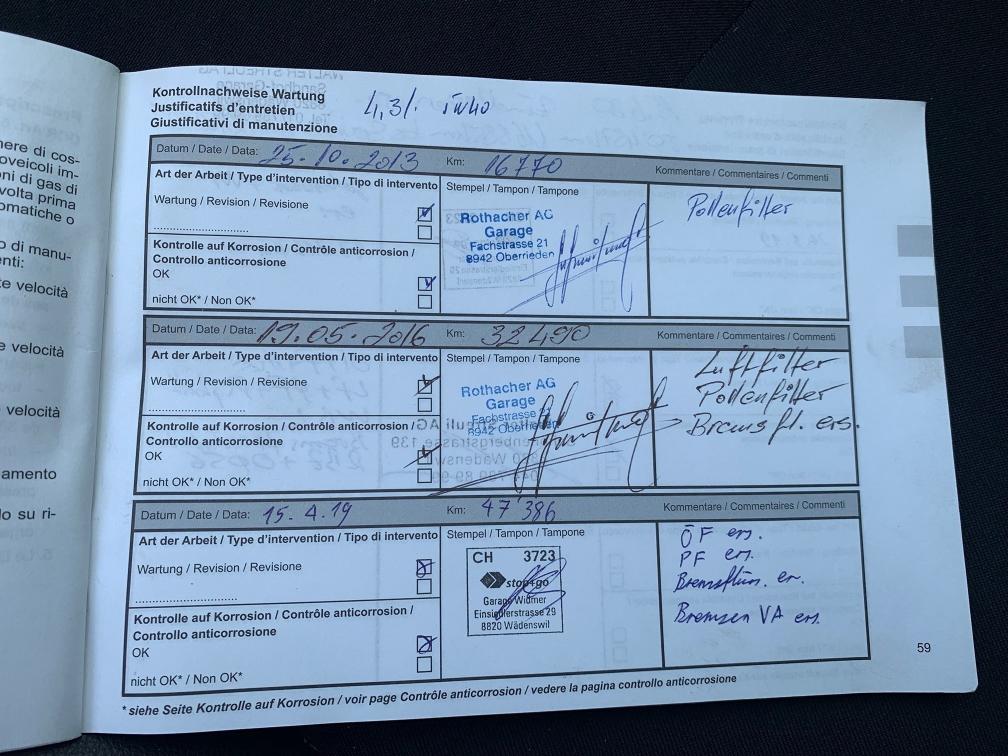 Kontrollnachweise Wartung
Justificatifs d'entretien
Giustificativi di manutenzione
4,3l.
Datum / Date / Data: 25.10.2013 Km: 16770 Kommentare / Commentaires / Commenti
Art der Arbeit / Type d'intervention / Tipo di intervento
Wartung / Revision / Revisione
Kontrolle auf Korrosion / Contrôle anticorrosion /
Controllo anticorrosione
OK
nicht OK* / Non OK*
Stempel / Tampon / Tampone
Rothacher AG
Garage
Fachstrasse 21
8942 Oberrieden
Pollenfilter
Datum / Date / Data: 19.05.2016 Km: 32490 Kommentare / Commentaires / Commenti
Art der Arbeit / Type d'intervention / Tipo di intervento
Wartung / Revision / Revisione
Kontrolle auf Korrosion / Contrôle anticorrosion /
Controllo anticorrosione
OK
nicht OK* / Non OK*
Stempel / Tampon / Tampone
Rothacher AG
Garage
Fachstrasse 21
8942 Oberrieden
Luftfilter
Pollenfilter
Bremsfl. ers.
Datum / Date / Data: 15.4.19 Km: 47'386 Kommentare / Commentaires / Commenti
Art der Arbeit / Type d'intervention / Tipo di intervento
Wartung / Revision / Revisione
Kontrolle auf Korrosion / Contrôle anticorrosion /
Controllo anticorrosione
OK
nicht OK* / Non OK*
Stempel / Tampon / Tampone
CH 3723
stop+go
Garage Widmer
Einsiedlerstrasse 29
8820 Wädenswil
ÖF ers.
PF ers.
Bremsflüss. er.
Bremsen VA ers.
* siehe Seite Kontrolle auf Korrosion / voir page Contrôle anticorrosion / vedere la pagina controllo anticorrosione
59
nere di cos-
oveicoli im-
oni di gas di
volta prima
omatiche o
o di manu-
enti:
e velocità
e velocità
velocità
amento
lo su ri-